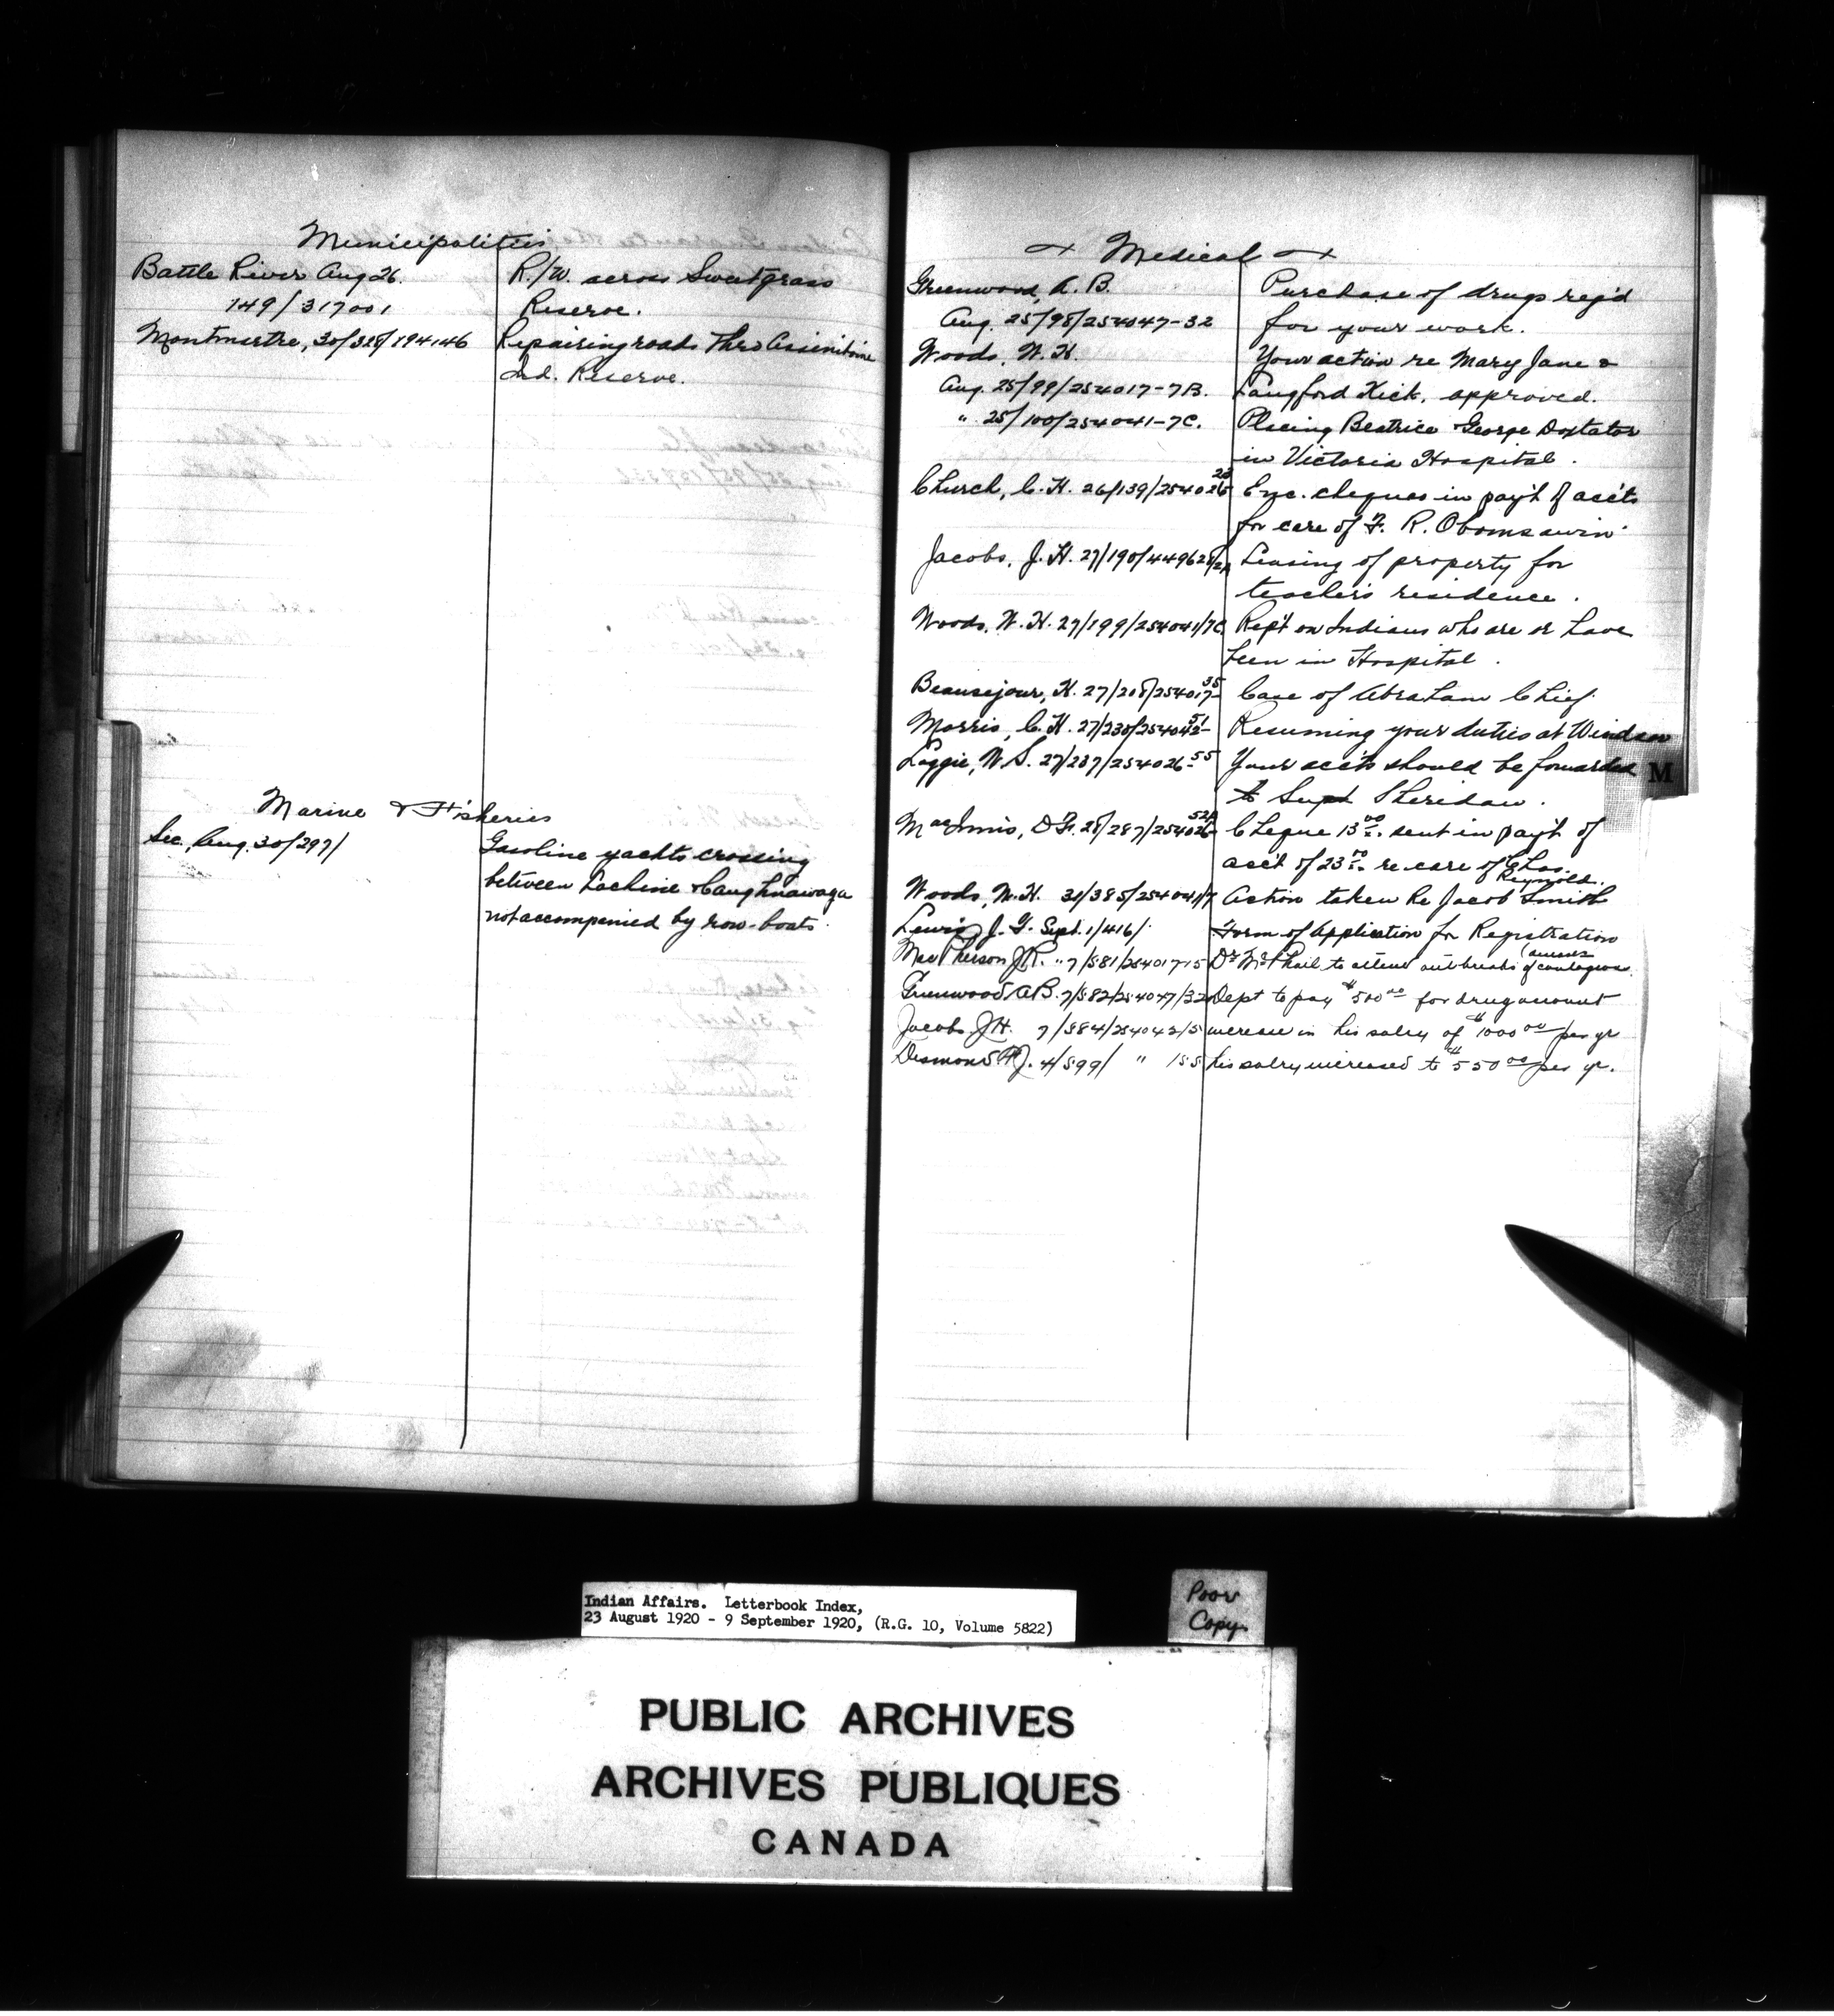 Municipalities
Battle River Aug 26. R./W. across Sweetgrass
149/317001 Reserve.
Montmartre, 30/328/194146 Repairing roads thro Assiniboine
Ind. Reserve.
Marine & Fisheries
Sec, Aug. 30/297/ Gasoline yachts crossing
between Lachine & Caughnawaga
not accompanied by row-boats.
Medical
Greenwood, A. B. Purchase of drugs req'd
Aug. 25/98/254047-32 for your work.
Woods, W. H. Your action re Mary Jane &
Aug. 25/99/254017-7B. Langford Kick, approved.
" 25/100/254041-7C. Placing Beatrice George Doxtator
in Victoria Hospital.
Church, C. H. 26/139/254026 23 Enc. cheques in pay't of acc'ts
for care of F. R. Obomsawin.
Jacobs, J. H. 27/190/449628/2A Leasing of property for
teacher's residence.
Woods, W. H. 27/199/254041/7C Rep't on Indians who are or have
been in Hospital.
Beausejour, H. 27/208/254017-35 Case of Abraham Chief.
Morris, C. H. 27/230/254042-51 Resuming your duties at Windsor
Loggie, W. S. 27/237/254026-55 Your acc'ts should be forwarded
to Supt Sheridan.
MacInnis, D F. 28/287/254026 52A Cheque 13 00. sent in pay't of
acc't of 23 00. re care of Chas.
Reynolds.
Woods, W. H. 30/385/254041/7 Action taken Re Jacob Smith
Lewis, J. G. Sept. 1/416/. Form of Application for Registration
MacPherson J R. " 7/581/254017-15 Dr McPhail to attend outbreaks of contagious
Greenwood A B. 7/582/254047/32 Dept to pay $500 00 for drug account
Jacobs J H. 7/584/254042/5 increase in his salry of $1000 00 per yr
Desmond 4/599/ " 155 his salry increased to $550 00 per yr.
M
Indian Affairs. Letterbook Index,
23 August 1920 - 9 September 1920, (R.G. 10, Volume 5822)
Poor
Copy.
PUBLIC ARCHIVES
ARCHIVES PUBLIQUES
CANADA